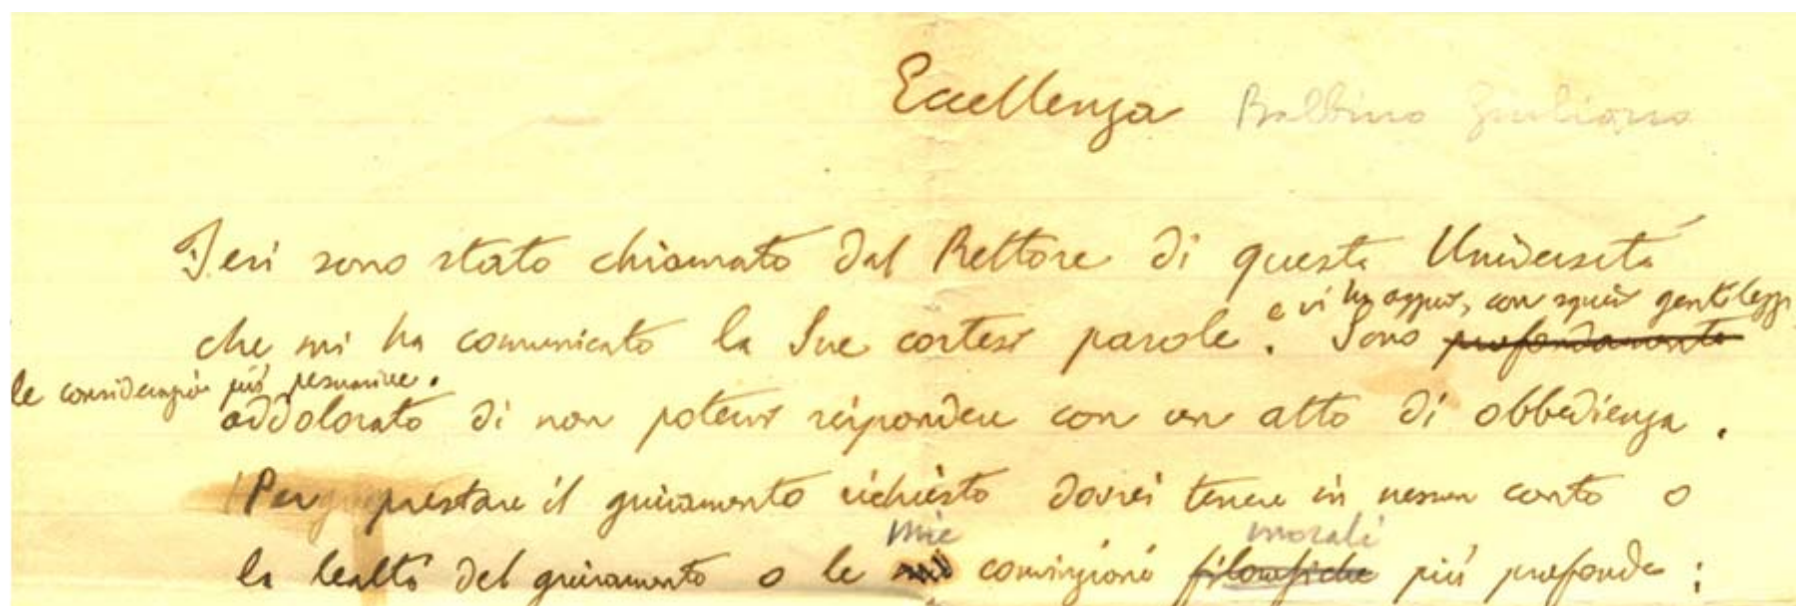 Eccellenza Balbino Giuliano
Ieri sono stato chiamato dal Rettore di questa Università
che mi ha comunicato le Sue cortesi parole e vi ha aggiunto, con squisita gentilezza,
le considerazioni più persuasive. Sono profondamente
addolorato di non potervi rispondere con un atto di obbedienza.
Per prestare il giuramento richiesto dovrei tenere in nessun conto o
la lealtà del giuramento o le mie convinzioni filosofiche morali più profonde;